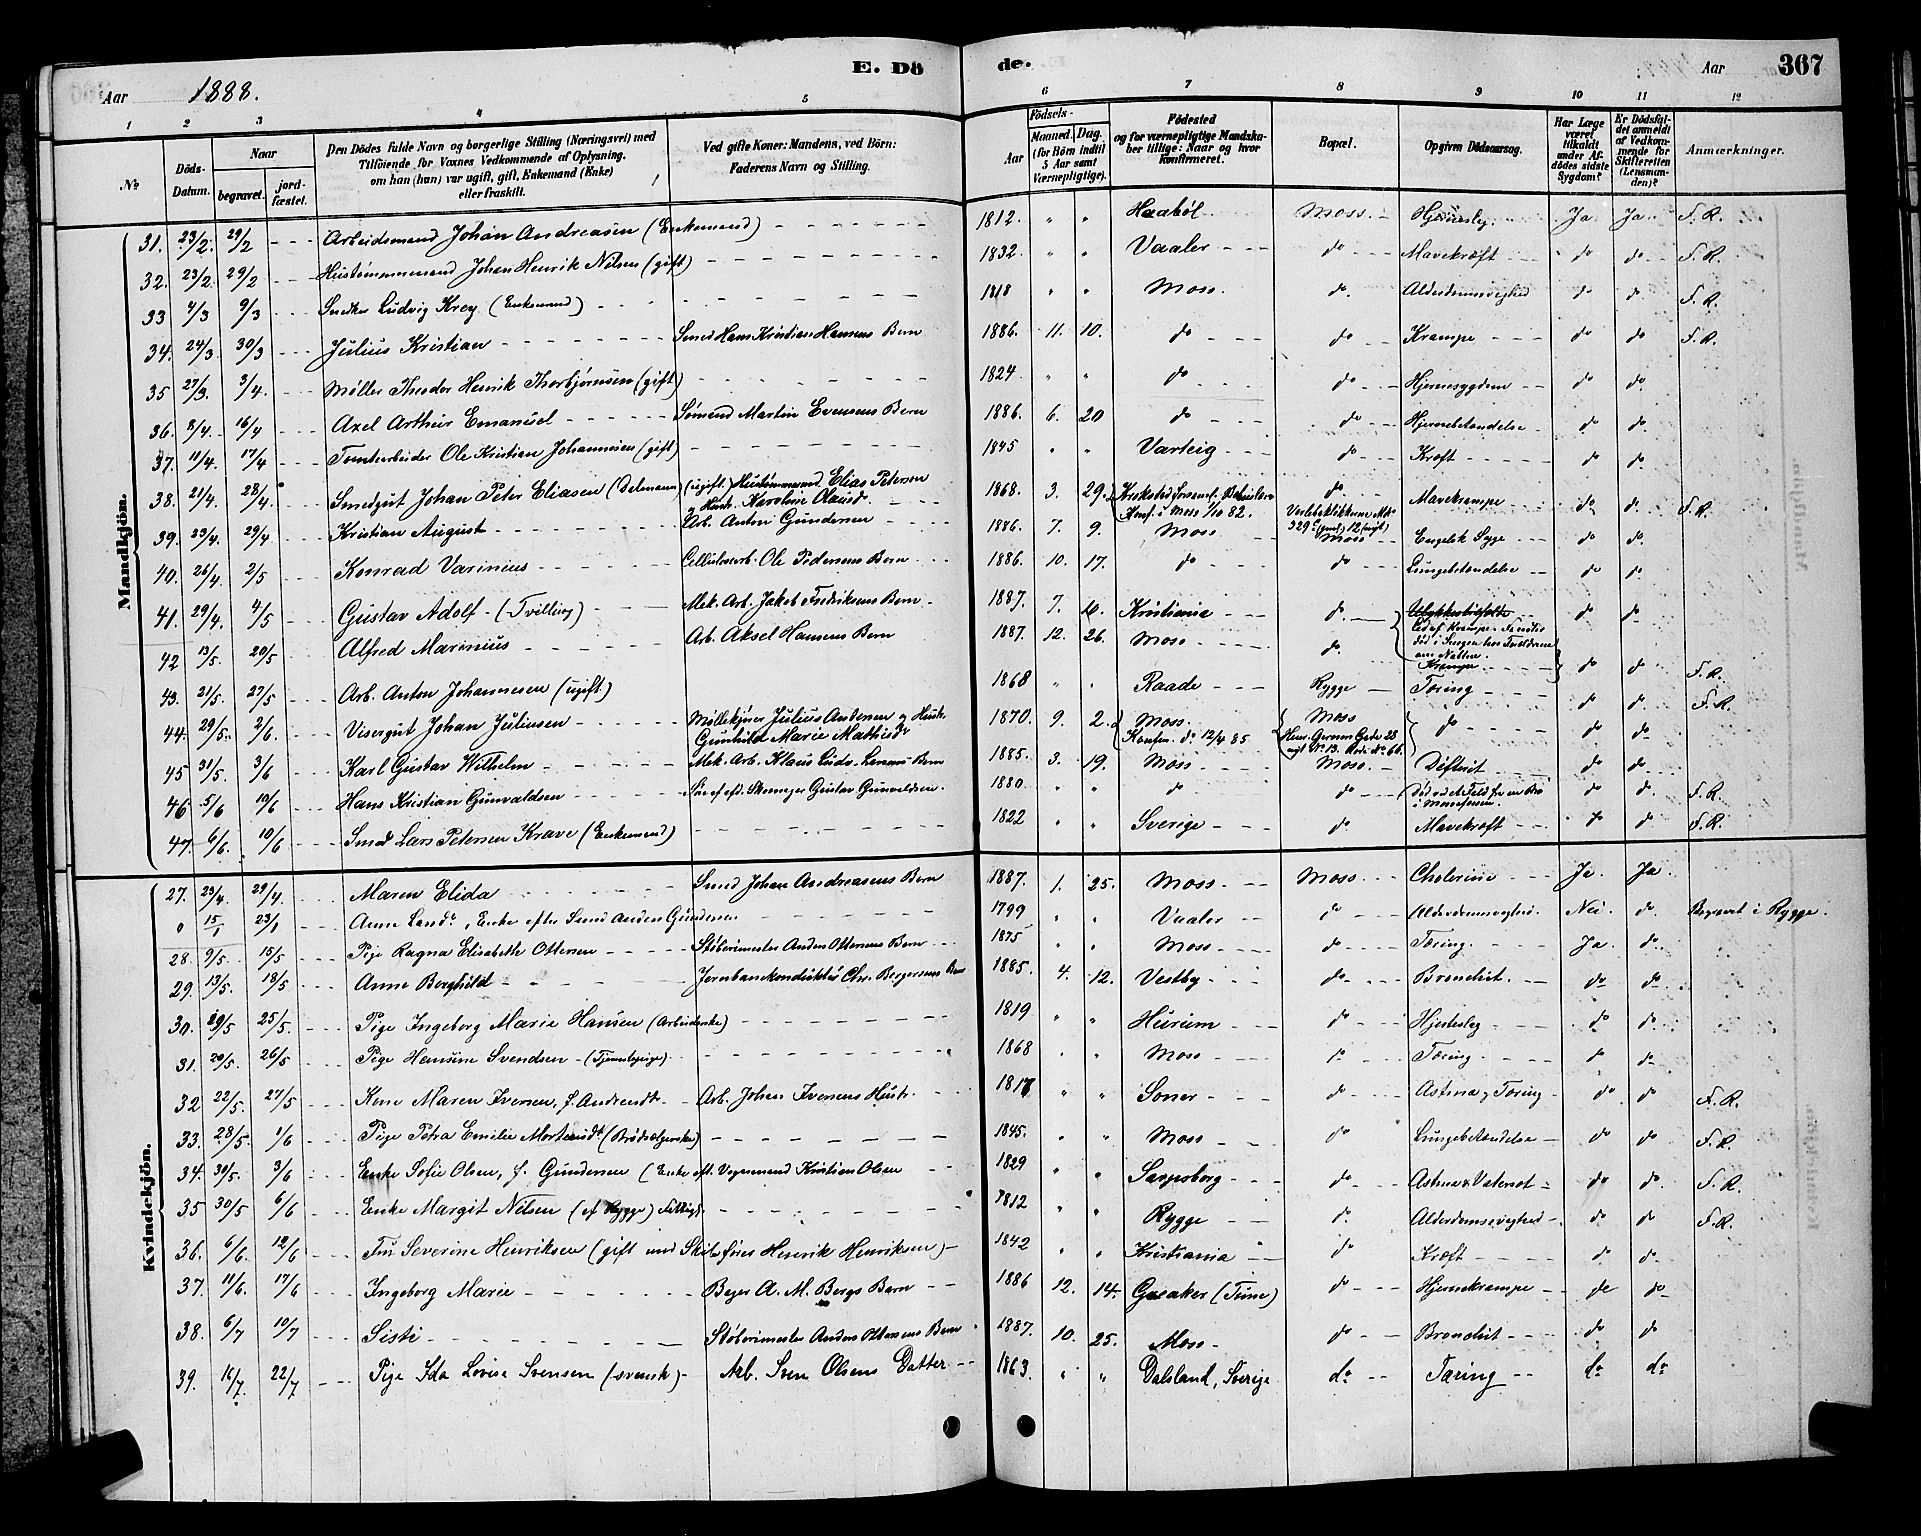 Aar 1888. E. Dö de. Aar 367
1 2 3 4 5 6 7 8 9 10 11 12
No Döds-Datum. Naar begravet. jord-fæstet. Den Dödes fulde Navn og borgerlige Stilling (Næringsvei) med Tilföiende for Voxnes Vedkommende af Oplysning, om han (hun) var ugift, gift, Enkemand (Enke) eller fraskilt. Ved gifte Koner: Mandens, ved Börn: Faderens Navn og Stilling. Födsels- Aar Maaned. Dag. (for Börn indtil 5 Aar samt Værnepligtige). Födested og for værnepligtige Mandskaber tillige: Naar og hvor Konfirmeret. Bopæl. Opgiven Dödsaarsag. Har Læge været tilkaldt under Afdödes sidste Sygdom? Er Dödsfaldet anmeldt af Vedkommende for Skifteretten (Lensmanden)? Anmærkninger.
Mandkjön.
31. 23/2. 29/2 Arbeidsmand Johan Andreasen (Enkemand) 1812. " " Haabøl Moss Ja Ja F. R.
32. 23/2 29/2 Hustømmermand Johan Henrik Nilsen (gift) 1832. " " Vaaler do Mavekræft do do F. R.
33 4/3 9/3 Snedker Ludvig Krey (Enkemand) 1818 " " Moss do. Alderdomssvaghed do do F. R.
34. 24/3 30/3 Julius Kristian Smed Hans Kristian Hansens Barn 1886. 11. 10. do do Krampe do do F. R.
35 27/3. 3/4. Møller Theodor Henrik Thorbjørnsen (gift) 1824 " " do do Hjernesygdom do do
36. 8/4. 16/4 Axel Arthur Emanuel Sømand Martin Evensens Barn 1886. 6. 20 do do Hjernebetændelse do do
37. 11/4. 17/4 Tomtearbeider Ole Kristian Johannesen (gift) 1845 " " Varteig do Kræft do do
38. 21/4. 28/4. Smedgut Johan Peter Eliasen (Delemann) (ugift.) Hustømmermand Elias Petersen
& Hust. Karoline Olausd. 1868. 3. 29. Konf. i Moss 1/10 82. do Mavekrampe do do F. R.
39. 23/4. 29/4 Kristian August Arb. Anton Gundersen 1886. 7. 9. Moss Moss Engelsk Syge do do
40. 26/4 2/5 Konrad Varinius Cellulosearb. Ole Pedersens Barn 1886. 10. 17. do do Lungebetændelse do do
41. 29/4. 4/5 Gustav Adolf (Tvilling) Mek. Arb. Jakob Fredriksens Barn 1887. 7. Kristiania do do do
42 13/5. 20/5 Alfred Marinius Arb. Aksel Hansens Barn 1887. 12. 26. Moss do. død i Sengen hos Forældrene om Natten. Krampe do do F. R.
43. 21/5. 27/5 Arb. Anton Johannesen (ugift) 1868 " " Raade Rygge Tæring do do F. R.
44. 29/5. 2/6. Visergut Johan Juliusen Møllekjører Julius Antonsen & Hust.
Gunhild Marie Mathisdr 1870. 9. 2. Moss. Konfir. do 12/4 85 Moss do do do
45 31/5. 3/6 Karl Gustav Wilhelm Mek. Arb. Klaus Ludv. Larsens Barn 1885. 3. 19. Moss Moss. Difterit do do
46 5/6 10/6 Hans Kristian Gunvaldsen Søn af afd. Skomager Gustav Gunvaldsen. 1880. " " do do Død ved et Fald fra en Bro i Mossefossen. do do F. R.
47. 6/6. 10/6 Smed Lars Petersen Krave (Enkemand) 1822 " " Sverige do Mavekræft do do F. R.
Kvindekjön.
27. 23/4 29/4. Maren Elida Smed Johan Andreasens Barn 1887. 1. 25. Moss. Moss Cholerine Ja Ja
0 15/1 23/1 Anne Larsdr, Enke efter Smed Anders Gundersen 1799 " " Vaaler do Alderdomssvaghed. Nei. do. Begravet i Rygge.
28. 9/5. 15/5 Pige Ragna Elisabeth Ottersen Støberimester Anders Ottersens Barn 1875 " " Moss do Tæring. Ja do
29. 13/5. 18/5 Anne Borghild Jernbanekonduktør Chr. Bergersens Barn 1885. 4. 12. Vestby do Bronchit do do
30. 19/5 25/5. Pige Ingeborg Marie Hansen (Arbeiderske) 1819 " " Hurum do Hjerteslag do do
31. 20/5. 26/5 Pige Hansine Svendsen (Tjenestepige) 1868 " " Moss do Tæring do do
32 22/5. 27/5 Kone Maren Iversen, f. Andreasdr Arb. Johan Iversens Hust. 1817 " " Soner do Astma & Tæring do do F. R.
33. 28/5. 1/6 Pige Petra Emilie Mortensdr (Brødsælgerske) 1845. " " Moss do Lungebetændelse do do F. R.
34. 30/5. 3/6 Enke Sofie Olsen, f. Gundersen (Enke eft. Vognmand Kristian Olsen 1829 " " Sarpsborg do Astma & Vatersot do do F. R.
35 30/5 6/6 Enke Margit Nilsen (af Rygge) Fattigl. 1812 " " Rygge do Alderdomssvaghed do do F. R.
36. 6/6. 12/6 Fru Severine Henriksen (gift med Skibsfører Henrik Henriksen) 1842 " " Kristiania do Kræft do do
37. 11/6. 17/6 Ingeborg Marie Bager A. M. Bergs Barn 1886 12. 14. Greaaker (Tune) do Hjernekrampe do do
38. 6/7 10/7 Sisti Støberimester Anders Ottersens Barn 1887. 10. 25. Moss do Bronchit do do
39. 16/7. 22/7 Pige Ida Lovise Svensen (svensk) Arb. Sven Olsens Datter 1863. " " Dalsland, Sverige do Tæring do do